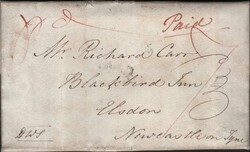 Paid
Mr. Richard Carr
Blackbird Inn
Elsdon
Newcastle on Tyne